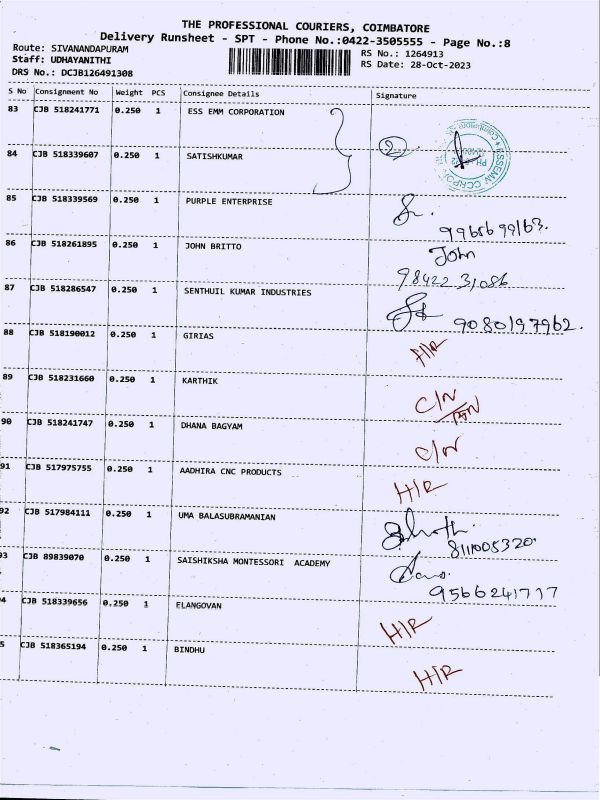 THE PROFESSIONAL COURIERS, COIMBATORE
Delivery Runsheet - SPT - Phone No.:0422-3505555 - Page No.:8
Route: SIVANANDAPURAM RS No.: 1264913
Staff: UDHAYANITHI RS Date: 28-Oct-2023
DRS No.: DCJB126491308
S No Consignment No Weight PCS Consignee Details Signature
83 CJB 518241771 0.250 1 ESS EMM CORPORATION
84 CJB 518339607 0.250 1 SATISHKUMAR 2
85 CJB 518339569 0.250 1 PURPLE ENTERPRISE
9965699163.
86 CJB 518261895 0.250 1 JOHN BRITTO John
98422 31086
87 CJB 518286547 0.250 1 SENTHUIL KUMAR INDUSTRIES
9080197962.
88 CJB 518190012 0.250 1 GIRIAS H/R
89 CJB 518231660 0.250 1 KARTHIK C/N
90 CJB 518241747 0.250 1 DHANA BAGYAM C/N
91 CJB 517975755 0.250 1 AADHIRA CNC PRODUCTS H/R
92 CJB 517984111 0.250 1 UMA BALASUBRAMANIAN
8111005320.
93 CJB 89839070 0.250 1 SAISHIKSHA MONTESSORI ACADEMY
9566241717
4 CJB 518339656 0.250 1 ELANGOVAN H/R
5 CJB 518365194 0.250 1 BINDHU H/R